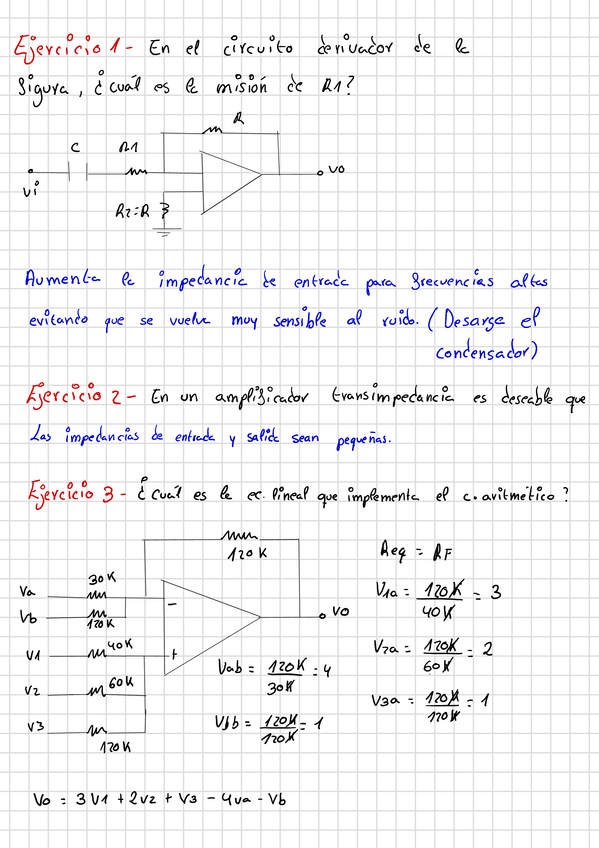 Ejercicio 1- En el circuito derivador de la
figura, ¿cuál es la misión de R1?
R
C
R1
Vi
VO
R2=R
Aumenta la impedancia de entrada para frecuencias altas
evitando que se vuelva muy sensible al ruido. (Desarga el
condensador)
Ejercicio 2- En un amplificador transimpedancia es deseable que
Las impedancias de entrada y salida sean pequeñas.
Ejercicio 3- ¿Cuál es la ec. lineal que implementa el c. aritmético?
120K
Req = RF
30K
Va
V1a = 120K/40K = 3
Vb
120K
-
VO
V1
40K
+
V2a = 120K/60K = 2
Vab = 120K/30K = 4
V2
60K
V3a = 120K/120K = 1
V3
Vbb = 120K/120K = 1
120K
Vo = 3V1 + 2V2 + V3 - 4Va - Vb